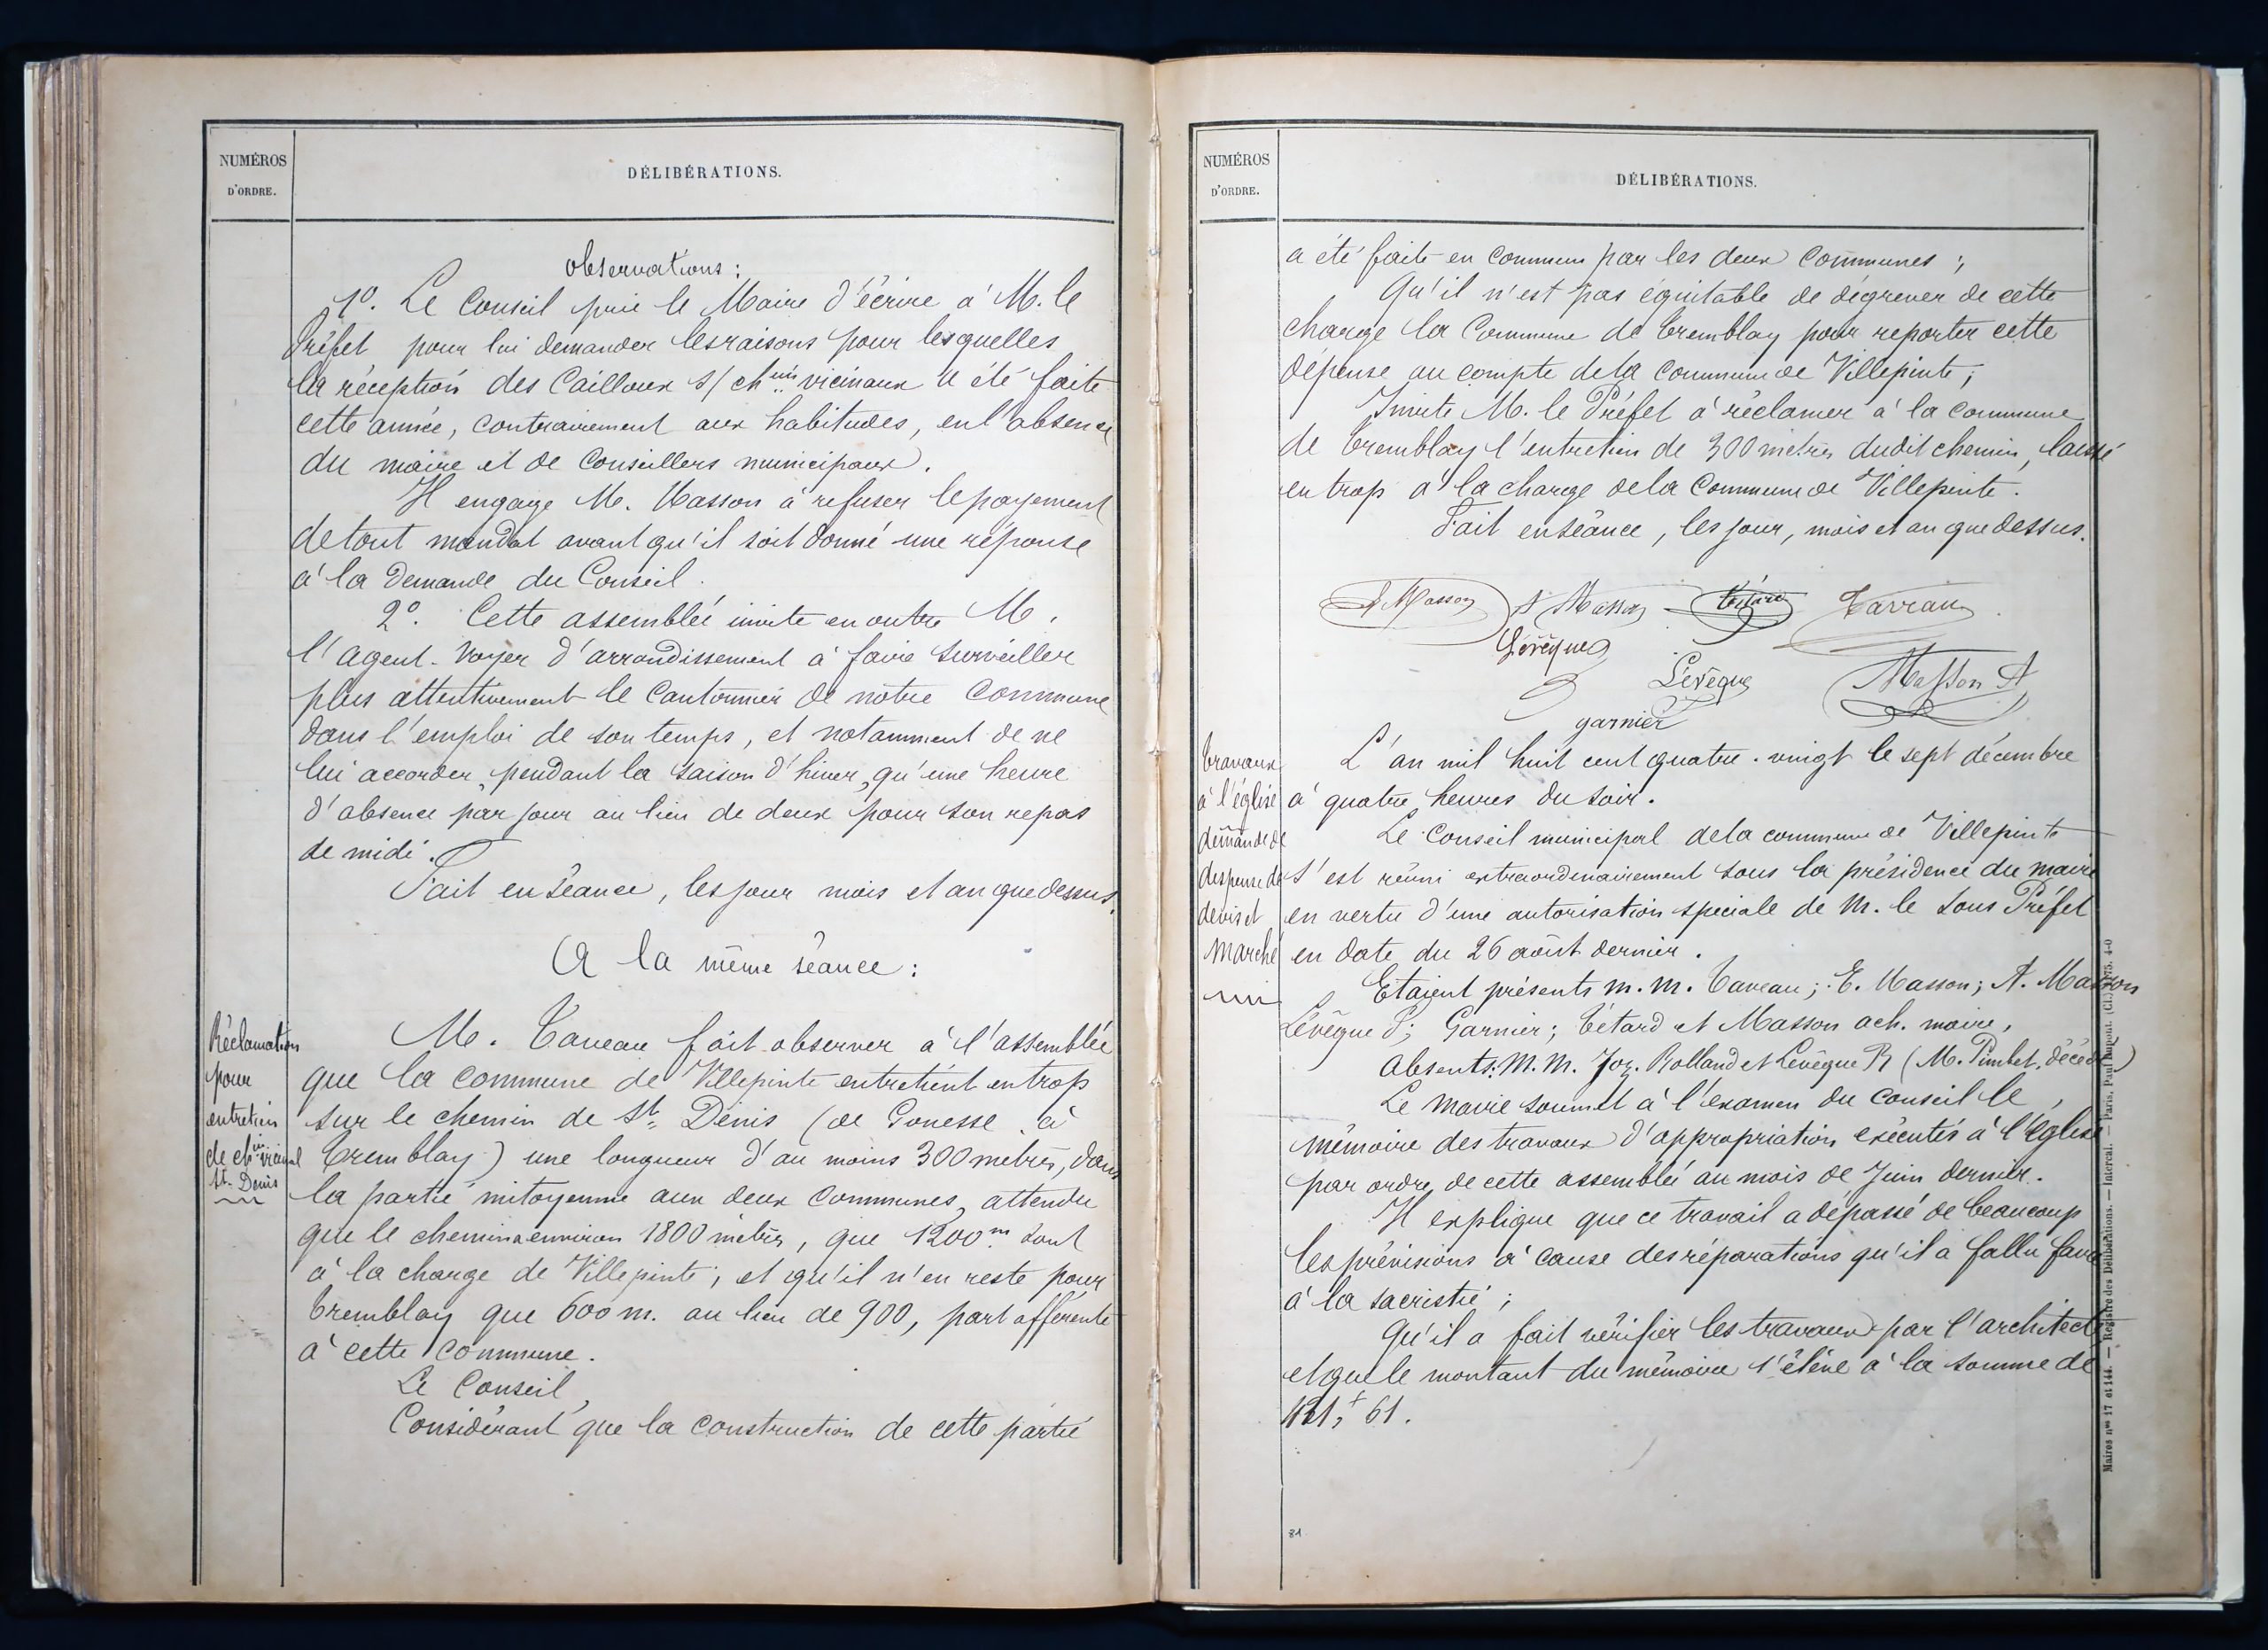 NUMÉROS
D'ORDRE.
DÉLIBÉRATIONS.
observations :
1º. Le Conseil prie le Maire d'écrire à M. le
Préfet pour lui demander les raisons pour lesquelles
la réception des Cailloux s/ ch.ins vicinaux a été faite
cette année, contrairement aux habitudes, en l'absence
du maire et de Conseillers municipaux.
Il engage M. Masson à refuser le payement
de tout mandat avant qu'il soit donné une réponse
à la demande du Conseil.
2º. Cette assemblée invite en outre M.
l'agent-Voyer d'arrondissement à faire surveiller
plus attentivement le Cantonnier de notre Commune
dans l'emploi de son temps, et notamment de ne
lui accorder, pendant la saison d'hiver, qu'une heure
d'absence par jour au lieu de deux pour son repas
de midi.
Fait en séance, les jour mois et an que dessus.
A la même séance :
Réclamation
pour
entretien
de ch.in vicinal
St. Denis
M. Taveau fait observer à l'assemblée
que la commune de Villepinte entretient en trop
sur le chemin de St. Denis (de Gonesse à
Tremblay) une longueur d'au moins 300 mètres, dans
la partie mitoyenne aux deux Communes, attendu
que le chemin a environ 1800 mètres, que 1200 m. sont
à la charge de Villepinte, et qu'il n'en reste pour
Tremblay que 600 m. au lieu de 900, part afférente
à cette Commune.
Le Conseil,
Considérant que la construction de cette partie
NUMÉROS
D'ORDRE.
DÉLIBÉRATIONS.
a été faite en commun par les deux communes ;
Qu'il n'est pas équitable de dégrever de cette
charge la Commune de Tremblay pour reporter cette
dépense au compte de la Commune de Villepinte ;
Invite M. le Préfet à réclamer à la commune
de Tremblay l'entretien de 300 mètres dudit chemin, laissé
en trop à la charge de la Commune de Villepinte.
Fait en séance, les jour, mois et an que dessus.
E Masson A Masson Tétard Taveau
Lévêque
Lévêque Masson A
garnier
Travaux
à l'église
demande de
dispense de
devis et
marché
L'an mil huit cent quatre-vingt le sept décembre
à quatre heures du soir.
Le Conseil municipal de la commune de Villepinte
s'est réuni extraordinairement sous la présidence du maire
en vertu d'une autorisation spéciale de M. le Sous Préfet
en date du 26 août dernier.
Etaient présents M. M. Taveau ; E. Masson ; A. Masson
Lévêque F ; Garnier ; Tétard et Masson ach. maire,
Absents : M. M. Joz. Rolland et Lévêque R (M. Pimbet, décédé)
Le Maire soumet à l'examen du Conseil le
mémoire des travaux d'appropriation exécutés à l'église
par ordre de cette assemblée au mois de Juin dernier.
Il explique que ce travail a dépassé de beaucoup
les prévisions à cause des réparations qu'il a fallu faire
à la sacristie ;
Qu'il a fait vérifier les travaux par l'architecte
et que le montant du mémoire s'élève à la somme de
421,f 61.
81
Maires nos 17 et 144. — Registre des Délibérations. — Intercal. — Paris, Paul Dupont. (Cl.)